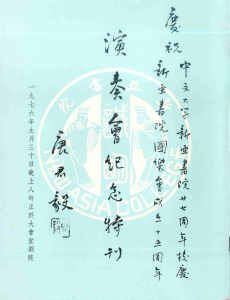 慶祝
中文大学新亜書院廿七周年校慶
新亜書院國樂會成立十五周年
演奏會紀念特刊
唐君毅
一九七六年九月三十日晚上八時正於大會堂劇院